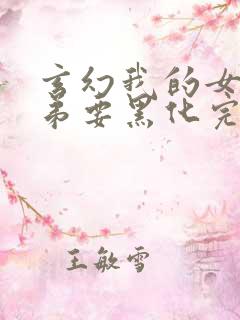 玄幻我的女
弟要黑化完
王敏雪